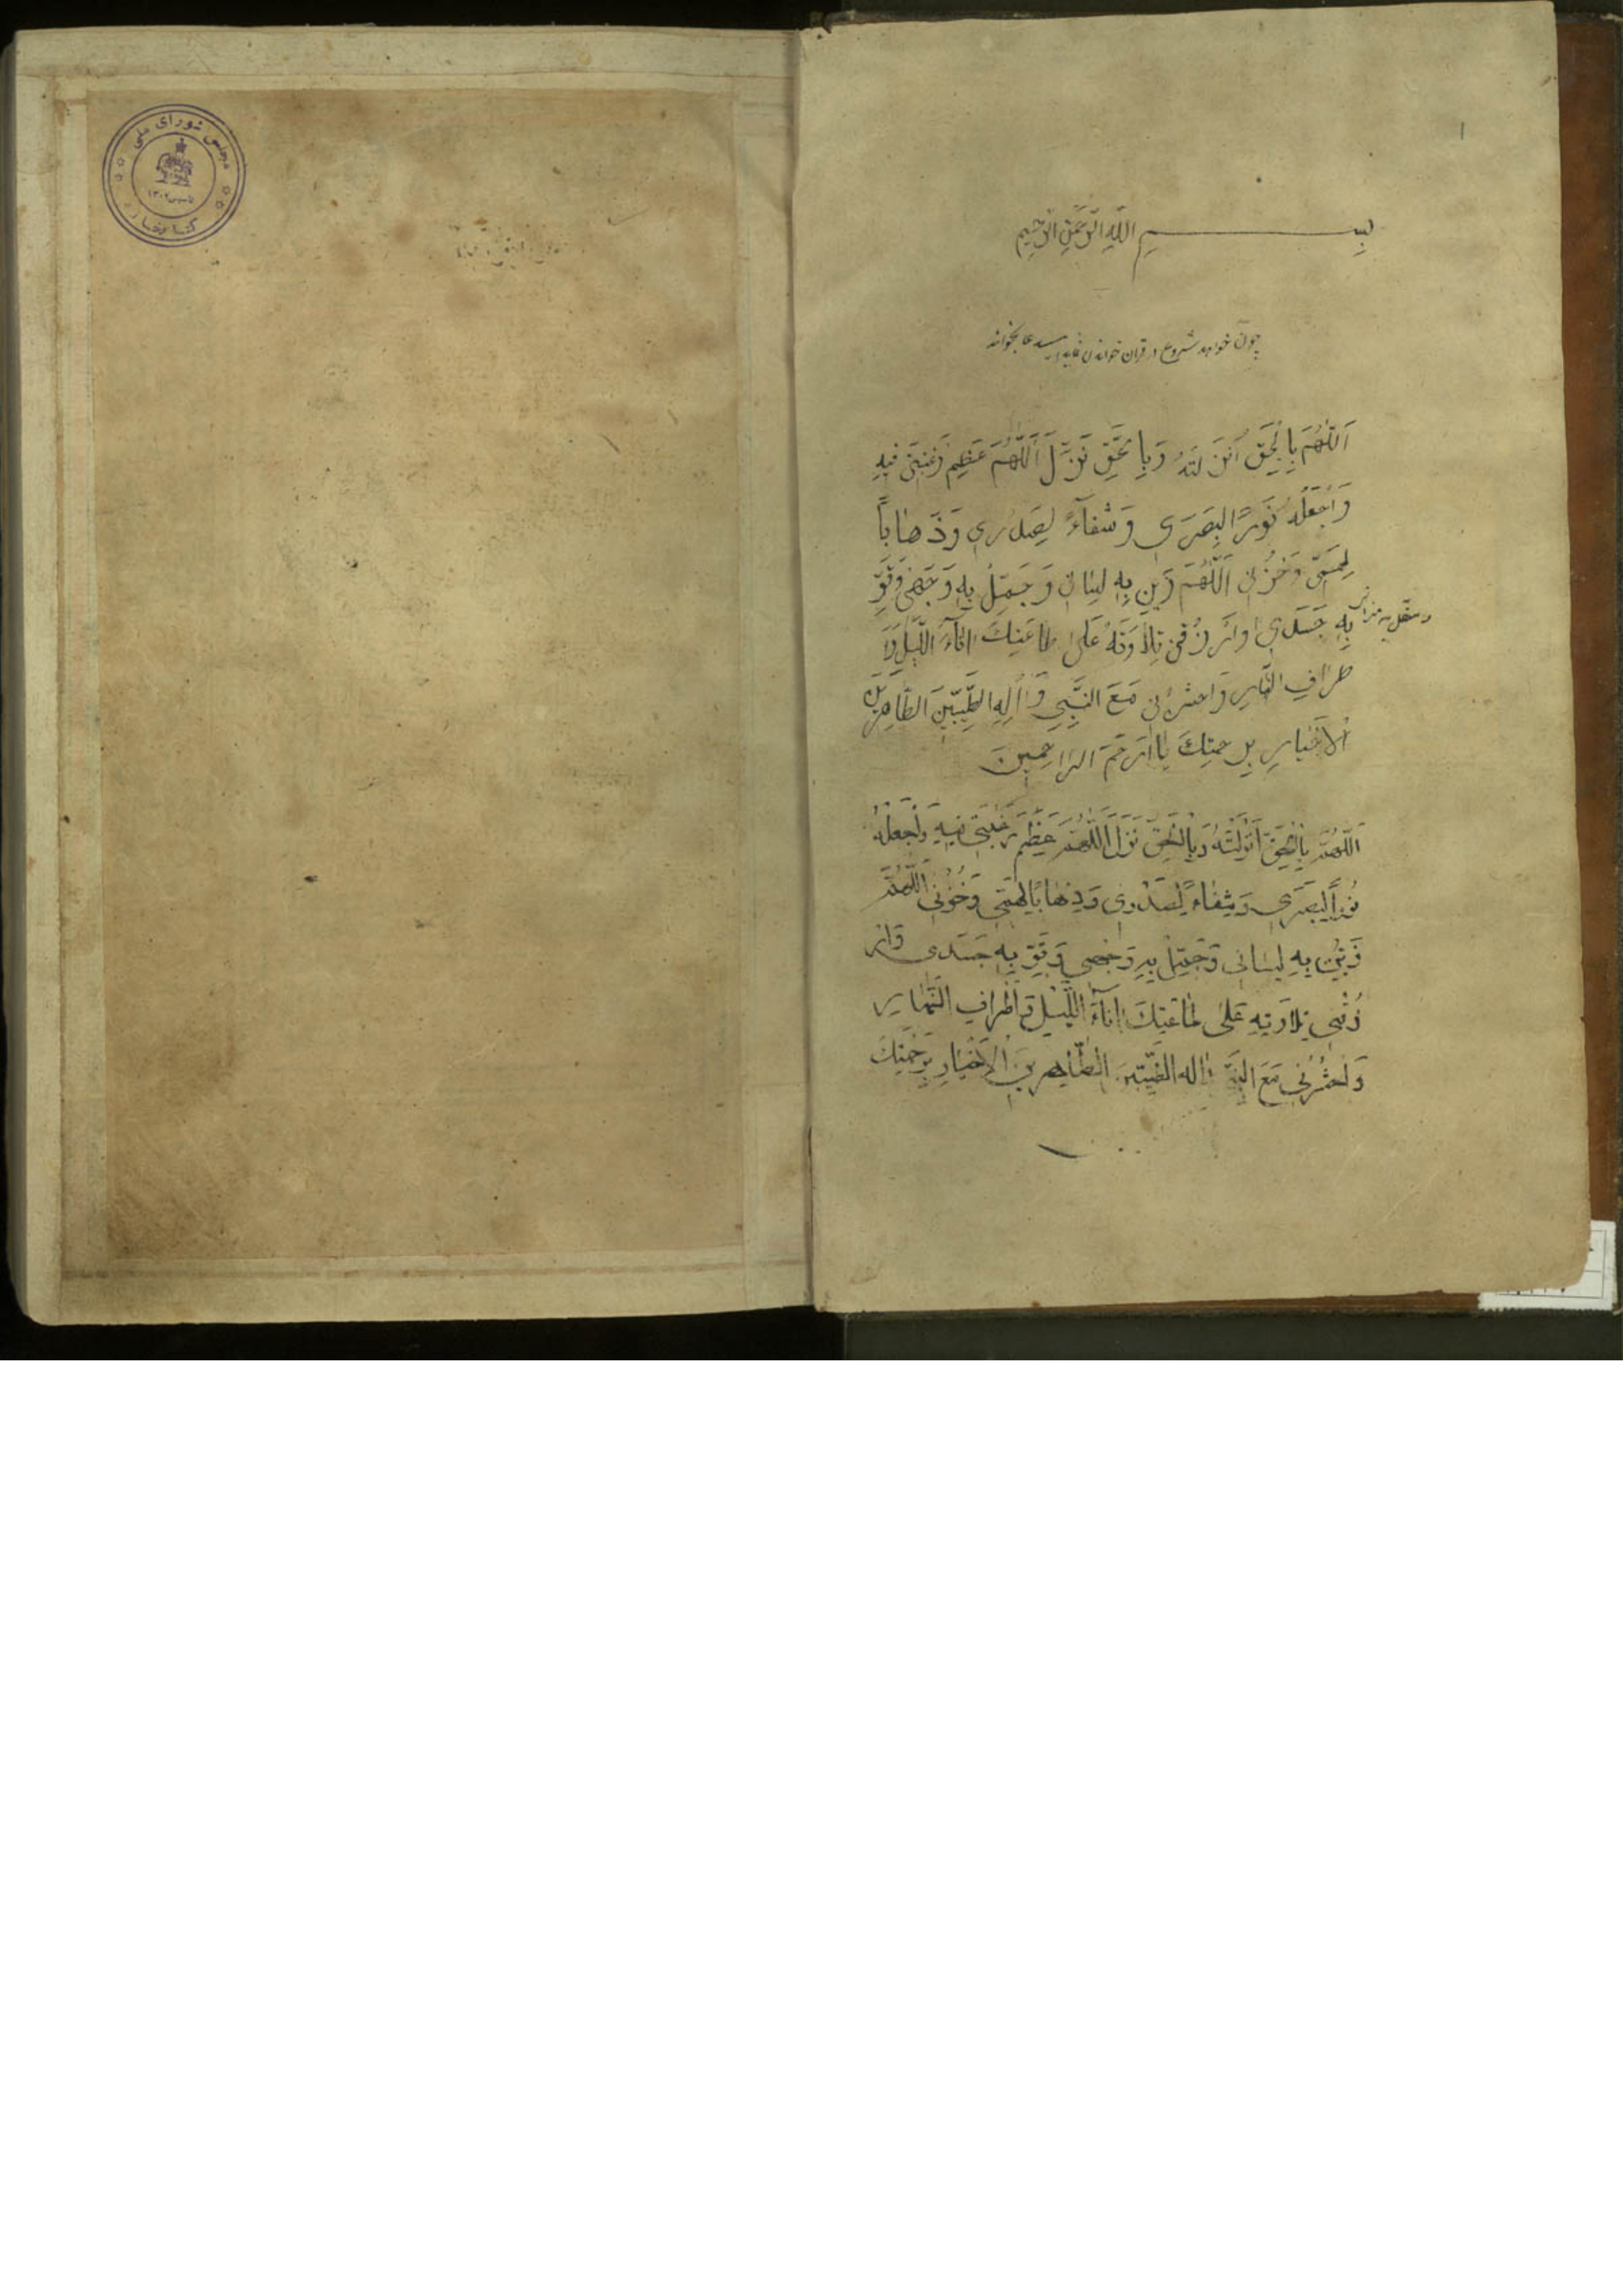 ۱
بسم الله الرحمن الرحيم
چون خواهد شروع در قران خواندن نماید این دعا بخواند
اَللّٰهُمَ بِالْحَقِ اَنْزَلتَهُ وَبِالحَقِّ نَزَّلَ اَللّٰهُمَ عَظِمِ رَغْبَتِی فیهِ
وَاْجَعَلُهُ نُوَرًا لِبَصَرَی وَشفآءً لِصَدری وَذَهاباً
لِهَمّی وَحُزنی اَللّٰهُمَ زَینِ بِهِ لِسٰانی وَجَمِّلُ بِهِ وَجَهیٰ وَقَوِّ
بِهِ جَسَدی وارزُقنی تِلٰاوَتَهُ عَلیٰ طاعَتِكَ اٰنآءَ اللَّیلِ وَاَ
طرافِ النَّهارِ وَاحشرنی مَعَ النَّبِیِ وَاٰلِهِ الطَّیِّبینَ الطّاهِرینَ
اْلاَخیارِ بِرحمتِكَ یٰا اَرحَمَ الرٰاحِمینَ
اَللّٰهُمَّ بِالْحَقِ اَنْزَلْتَهُ وَبِالْحَقِّ نَزَلَ اَللّٰهُمَّ عَظِّمْ رَغْبَتی فیهِ وَاْجَعَلهُ
نُورًاً لِبَصَرَی وَشِفٰاءً لِصَدْری وَذِهٰابًا لِهَمّی وَحُزْنی اَللّٰهُمَّ
زَیِّنْ بِهِ لِسٰانی وَجَمِّلْ بِهِ وَجْهی وَقَوِّ بِهِ جَسَدی وَار
زُقْنی تِلاوَتِهِ عَلیٰ طٰاعَتِكَ اٰنآءَ اللَّیْلِ وَاَطْرافِ النَّهٰارِ
وَاحْشُرْنی مَعَ النَّبِی وَاله الطَّیِّبینَ الطّٰاهِرینَ اْلاَخْیٰارِ بِرَحْمَتِكَ
مجلس شورای ملی
تاسیس ۱۳۰۲
کتابخانه